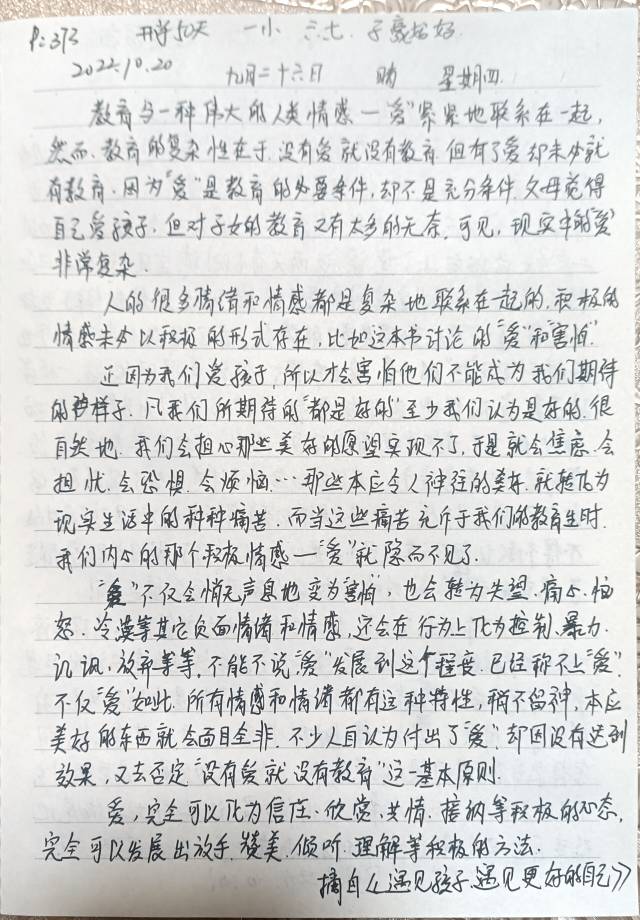 P:373 开学50天 一小 六七.子豪拍好
2022.10.20 九月二十六日 晴 星期四
教育与一种伟大的人类情感一“爱”紧紧地联系在一起,
然而.教育的复杂性在于.没有爱就没有教育.但有了爱却未必就
有教育.因为“爱”是教育的必要条件,却不是充分条件.父母觉得
自己爱孩子.但对子女的教育又有太多的无奈.可见,现实中的“爱”
非常复杂.
人的很多情绪和情感都是复杂地联系在一起的,积极的
情感未必以积极的形式存在,比如这本书讨论的“爱”和“害怕”.
正因为我们爱孩子,所以才会害怕他们不能成为我们期待
的样子.凡我们所期待的“都是好的”至少我们认为是好的.很
自然地.我们会担心那些美好的愿望实现不了,于是就会焦虑.会
担忧.会恐惧.会烦恼…那些本应令人神往的美好.就转化为
现实生活中的种种痛苦.而当这些痛苦充斥于我们的教育生时.
我们内心的那个积极情感一“爱”就隐而不见了.
“爱”不仅会悄无声息地变为“害怕”,也会转为失望.痛心.恼
怒.冷漠等其它负面情绪和情感,还会在行为上化为控制、暴力.
讥讽.放弃等等.不能不说,“爱”发展到这个程度.已经称不上“爱”.
不仅“爱”如此.所有情感和情绪都有这种特性,稍不留神,本应
美好的东西就会面目全非.不少人自认为付出了“爱”.却因没有达到
效果,又去否定“没有爱就没有教育”这一基本原则.
爱,完全可以化为信任.欣赏.共情.接纳等积极的心态,
完全可以发展出放手.赞美.倾听.理解等积极的方法.
摘自《遇见孩子.遇见更好的自己》